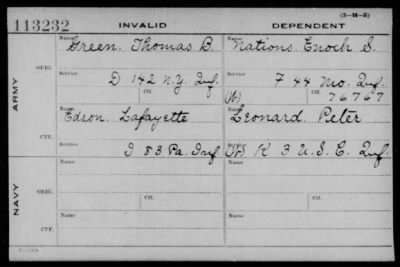 (3-M-3)
113232 INVALID DEPENDENT
Name Green. Thomas B. Name Nations. Enoch S.
ARMY
ORIG.
Service D 142 N.Y. Inf. Service F 44 Mo. Inf.
Ctf. (W) Ctf. 76767
Name Edson. Lafayette Name Leonard. Peter
CTF.
Service I 83 Pa. Inf. K 3 U.S.C. Inf.
Ctf. Ctf.
Name Name
NAVY
ORIG.
Service Service
Ctf. Ctf.
Name Name
CTF.